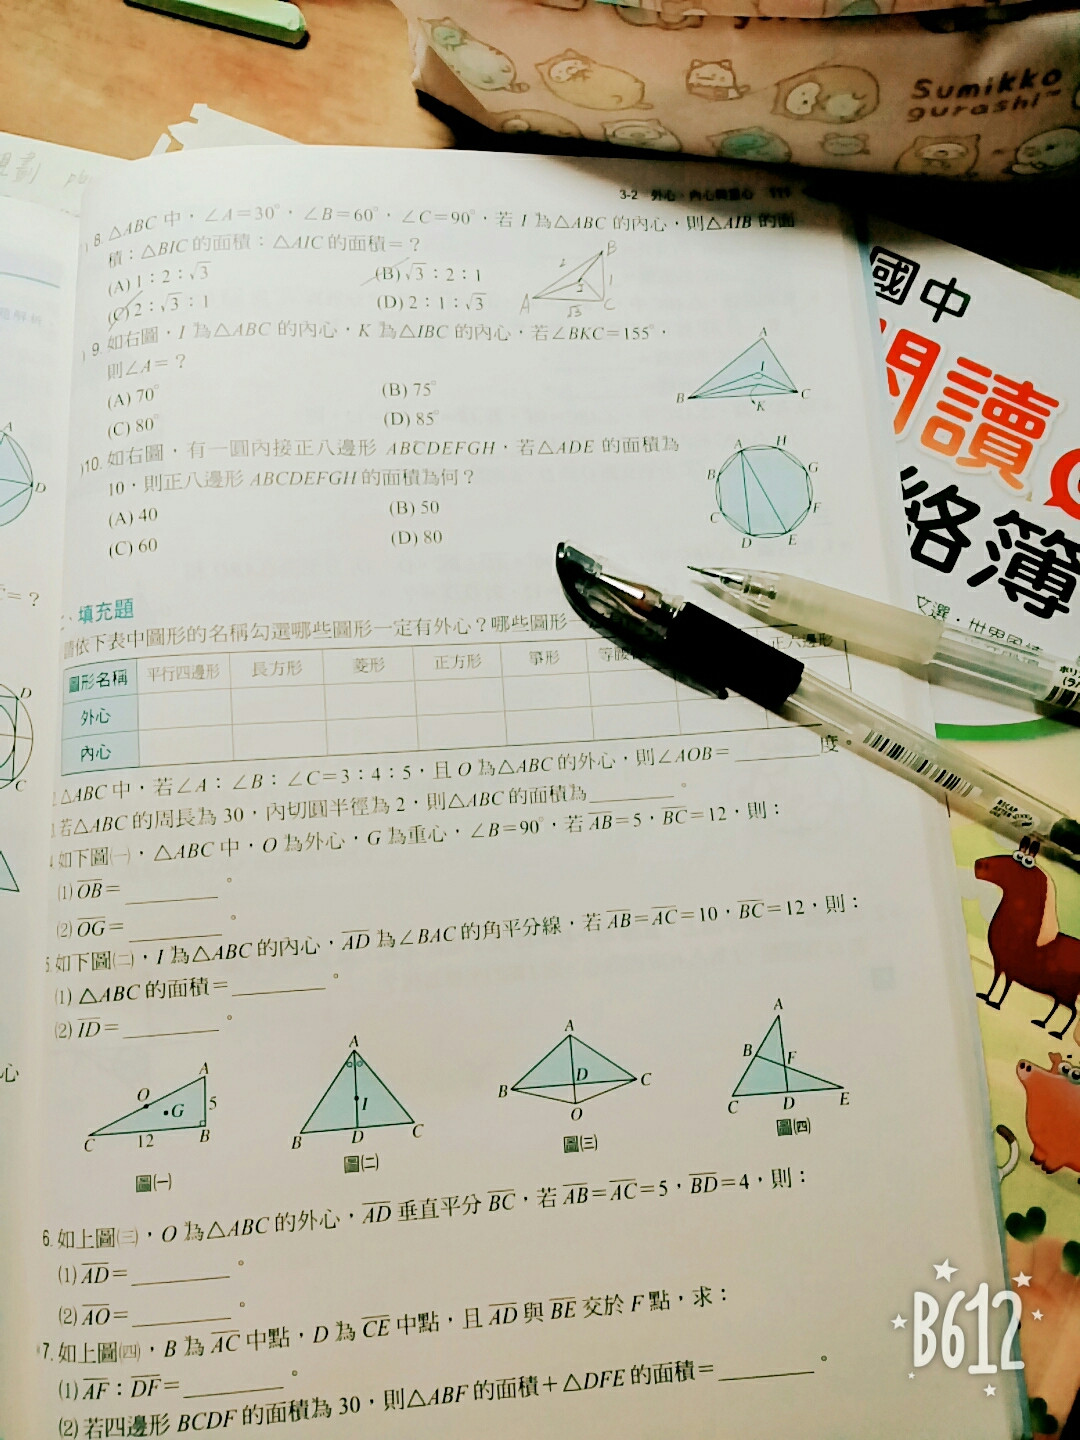 Sumikko
gurashi
3-2 外心、內心與重心 111
8. △ABC 中，∠A=30°，∠B=60°，∠C=90°，若 I 為△ABC 的內心，則△AIB 的面
積：△BIC 的面積：△AIC 的面積=？
(A) 1：2：√3 (B) √3：2：1
(C) 2：√3：1 (D) 2：1：√3
A B C 2 1 √3
9. 如右圖，I 為△ABC 的內心，K 為△IBC 的內心，若∠BKC=155°，
則∠A=？
(A) 70° (B) 75°
(C) 80° (D) 85°
A I B K C
10. 如右圖，有一圓內接正八邊形 ABCDEFGH，若△ADE 的面積為
10，則正八邊形 ABCDEFGH 的面積為何？
(A) 40 (B) 50
(C) 60 (D) 80
A H B G C F D E
國中
閱讀
絡簿
填充題
依下表中圖形的名稱勾選哪些圖形一定有外心？哪些圖形一
圖形名稱 平行四邊形 長方形 菱形 正方形 箏形 等腰 正六邊形
外心
內心
△ABC 中，若∠A：∠B：∠C=3：4：5，且 O 為△ABC 的外心，則∠AOB=＿＿＿度。
若△ABC 的周長為 30，內切圓半徑為 2，則△ABC 的面積為＿＿＿。
4. 如下圖㈠，△ABC 中，O 為外心，G 為重心，∠B=90°，若 AB=5，BC=12，則：
⑴ OB=＿＿＿。
⑵ OG=＿＿＿。
5. 如下圖㈡，I 為△ABC 的內心，AD 為∠BAC 的角平分線，若 AB=AC=10，BC=12，則：
⑴ △ABC 的面積=＿＿＿。
⑵ ID=＿＿＿。
A O G 5 C 12 B
圖㈠
A I B D C
圖㈡
A B D C O
圖㈢
A B F C D E
圖㈣
6. 如上圖㈢，O 為△ABC 的外心，AD 垂直平分 BC，若 AB=AC=5，BD=4，則：
⑴ AD=＿＿＿。
⑵ AO=＿＿＿。
7. 如上圖㈣，B 為 AC 中點，D 為 CE 中點，且 AD 與 BE 交於 F 點，求：
⑴ AF：DF=＿＿＿。
⑵ 若四邊形 BCDF 的面積為 30，則△ABF 的面積+△DFE 的面積=＿＿＿。
B612